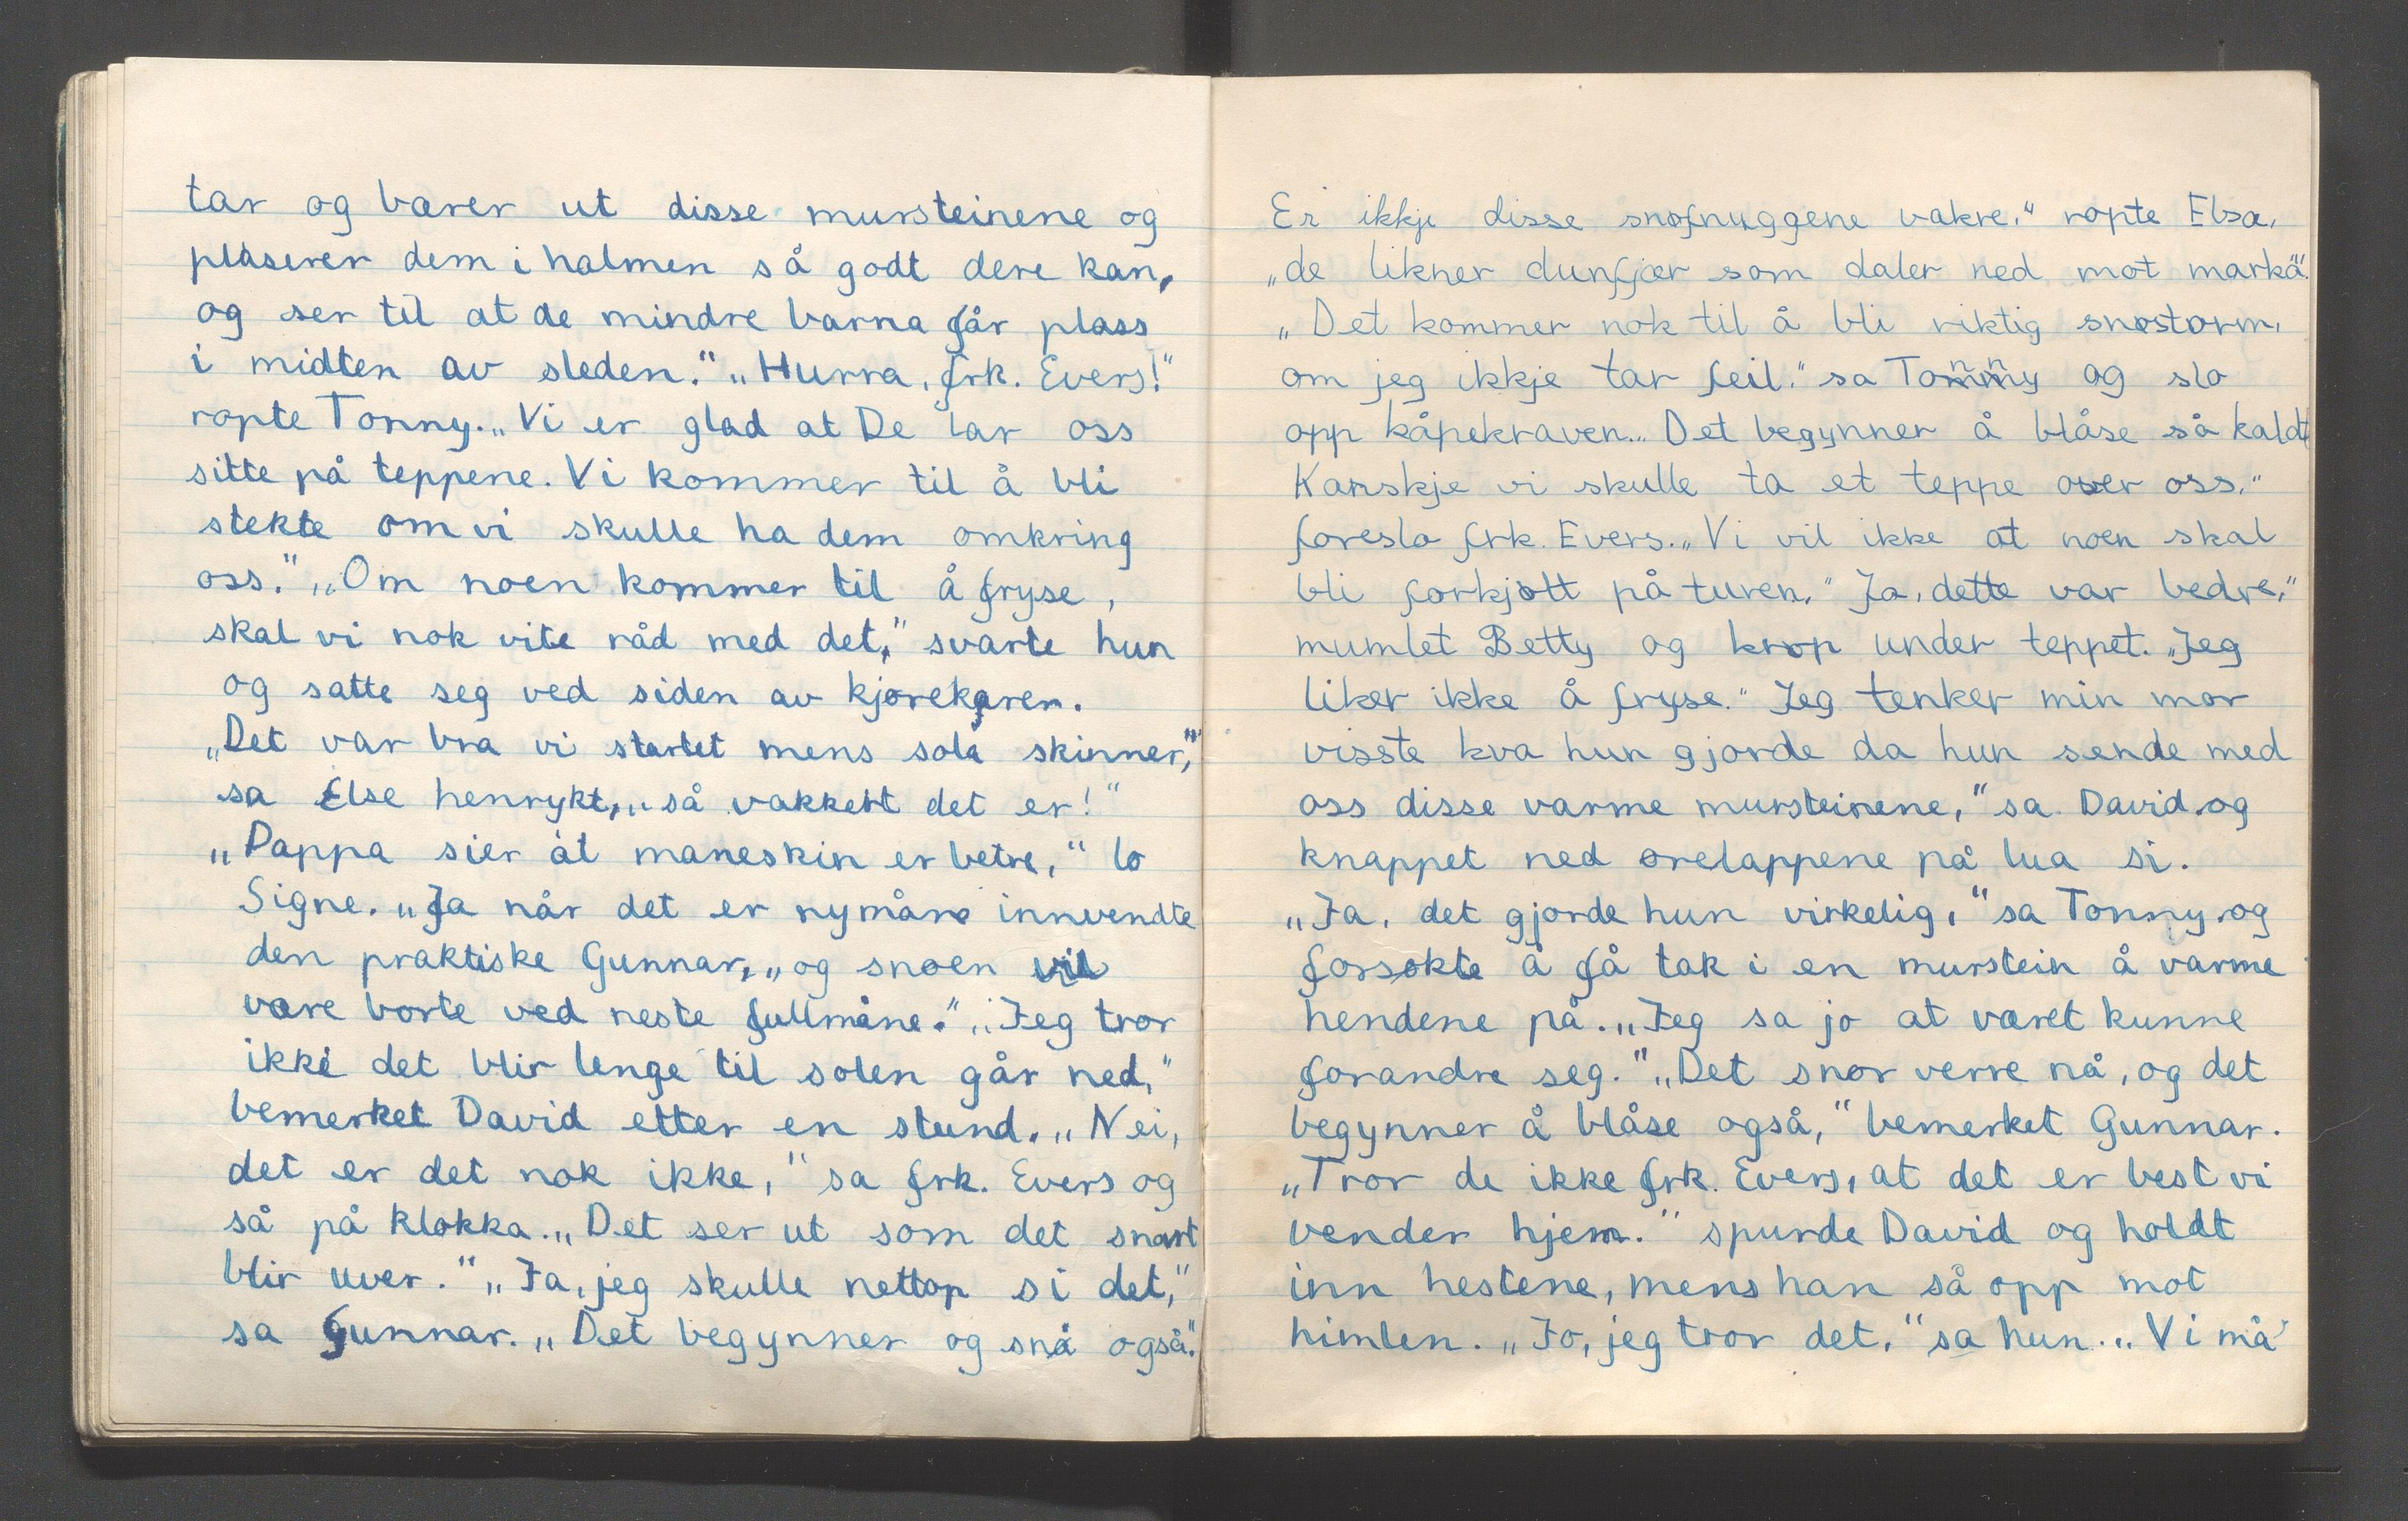 tar og bærer ut disse mursteinene og
plaserer dem i halmen så godt dere kan,
og ser til at de mindre barna får plass
i midten av sleden." „Hurra, frk. Evers!"
ropte Tonny. „Vi er glad at De lar oss
sitte på teppene. Vi kommer til å bli
stekte om vi skulle ha dem omkring
oss." „Om noen kommer til å fryse,
skal vi nok vite råd med det," svarte hun
og satte seg ved siden av kjørekaren.
„Det var bra vi startet mens sola skinner,"
sa Else henrykt, „så vakkert det er!"
„Pappa sier at måneskin er betre," lo
Signe. „Ja når det er nymåne innvendte
den praktiske Gunnar, „og snøen vil
være borte ved neste fullmåne." „Jeg tror
ikke det blir lenge til solen går ned,"
bemerket David etter en stund. „Nei,
det er det nok ikke," sa frk. Evers og
så på klokka. „Det ser ut som det snart
blir uver." „Ja, jeg skulle nettop si det,"
sa Gunnar. „Det begynner og snø også."
Er ikkje disse snøfnuggene vakre." ropte Elsa,
„de likner dunfjær som daler ned mot marka"
„Det kommer nok til å bli riktig snøstorm,
om jeg ikkje tar feil." sa Tonny og slo
opp kåpekraven. „Det begynner å blåse så kaldt
Kanskje vi skulle ta et teppe over oss,"
foreslo frk. Evers. „Vi vil ikke at noen skal
bli forkjølt på turen." Ja, dette var bedre,"
mumlet Betty og krøp under teppet. „Jeg
liker ikke å fryse." Jeg tenker min mor
visste kva hun gjorde da hun sende med
oss disse varme mursteinene," sa David og
knappet ned ørelappene på lua si.
„Ja, det gjorde hun virkelig," sa Tonny og
forsøkte å få tak i en murstein å varme
hendene på. „Jeg sa jo at været kunne
forandre seg." „Det snør verre nå, og det
begynner å blåse også," bemerket Gunnar.
„Tror de ikke frk. Evers, at det er best vi
vender hjem." spurde David og holdt
inn hestene, mens han så opp mot
himlen. „Jo, jeg tror det," sa hun. „Vi må